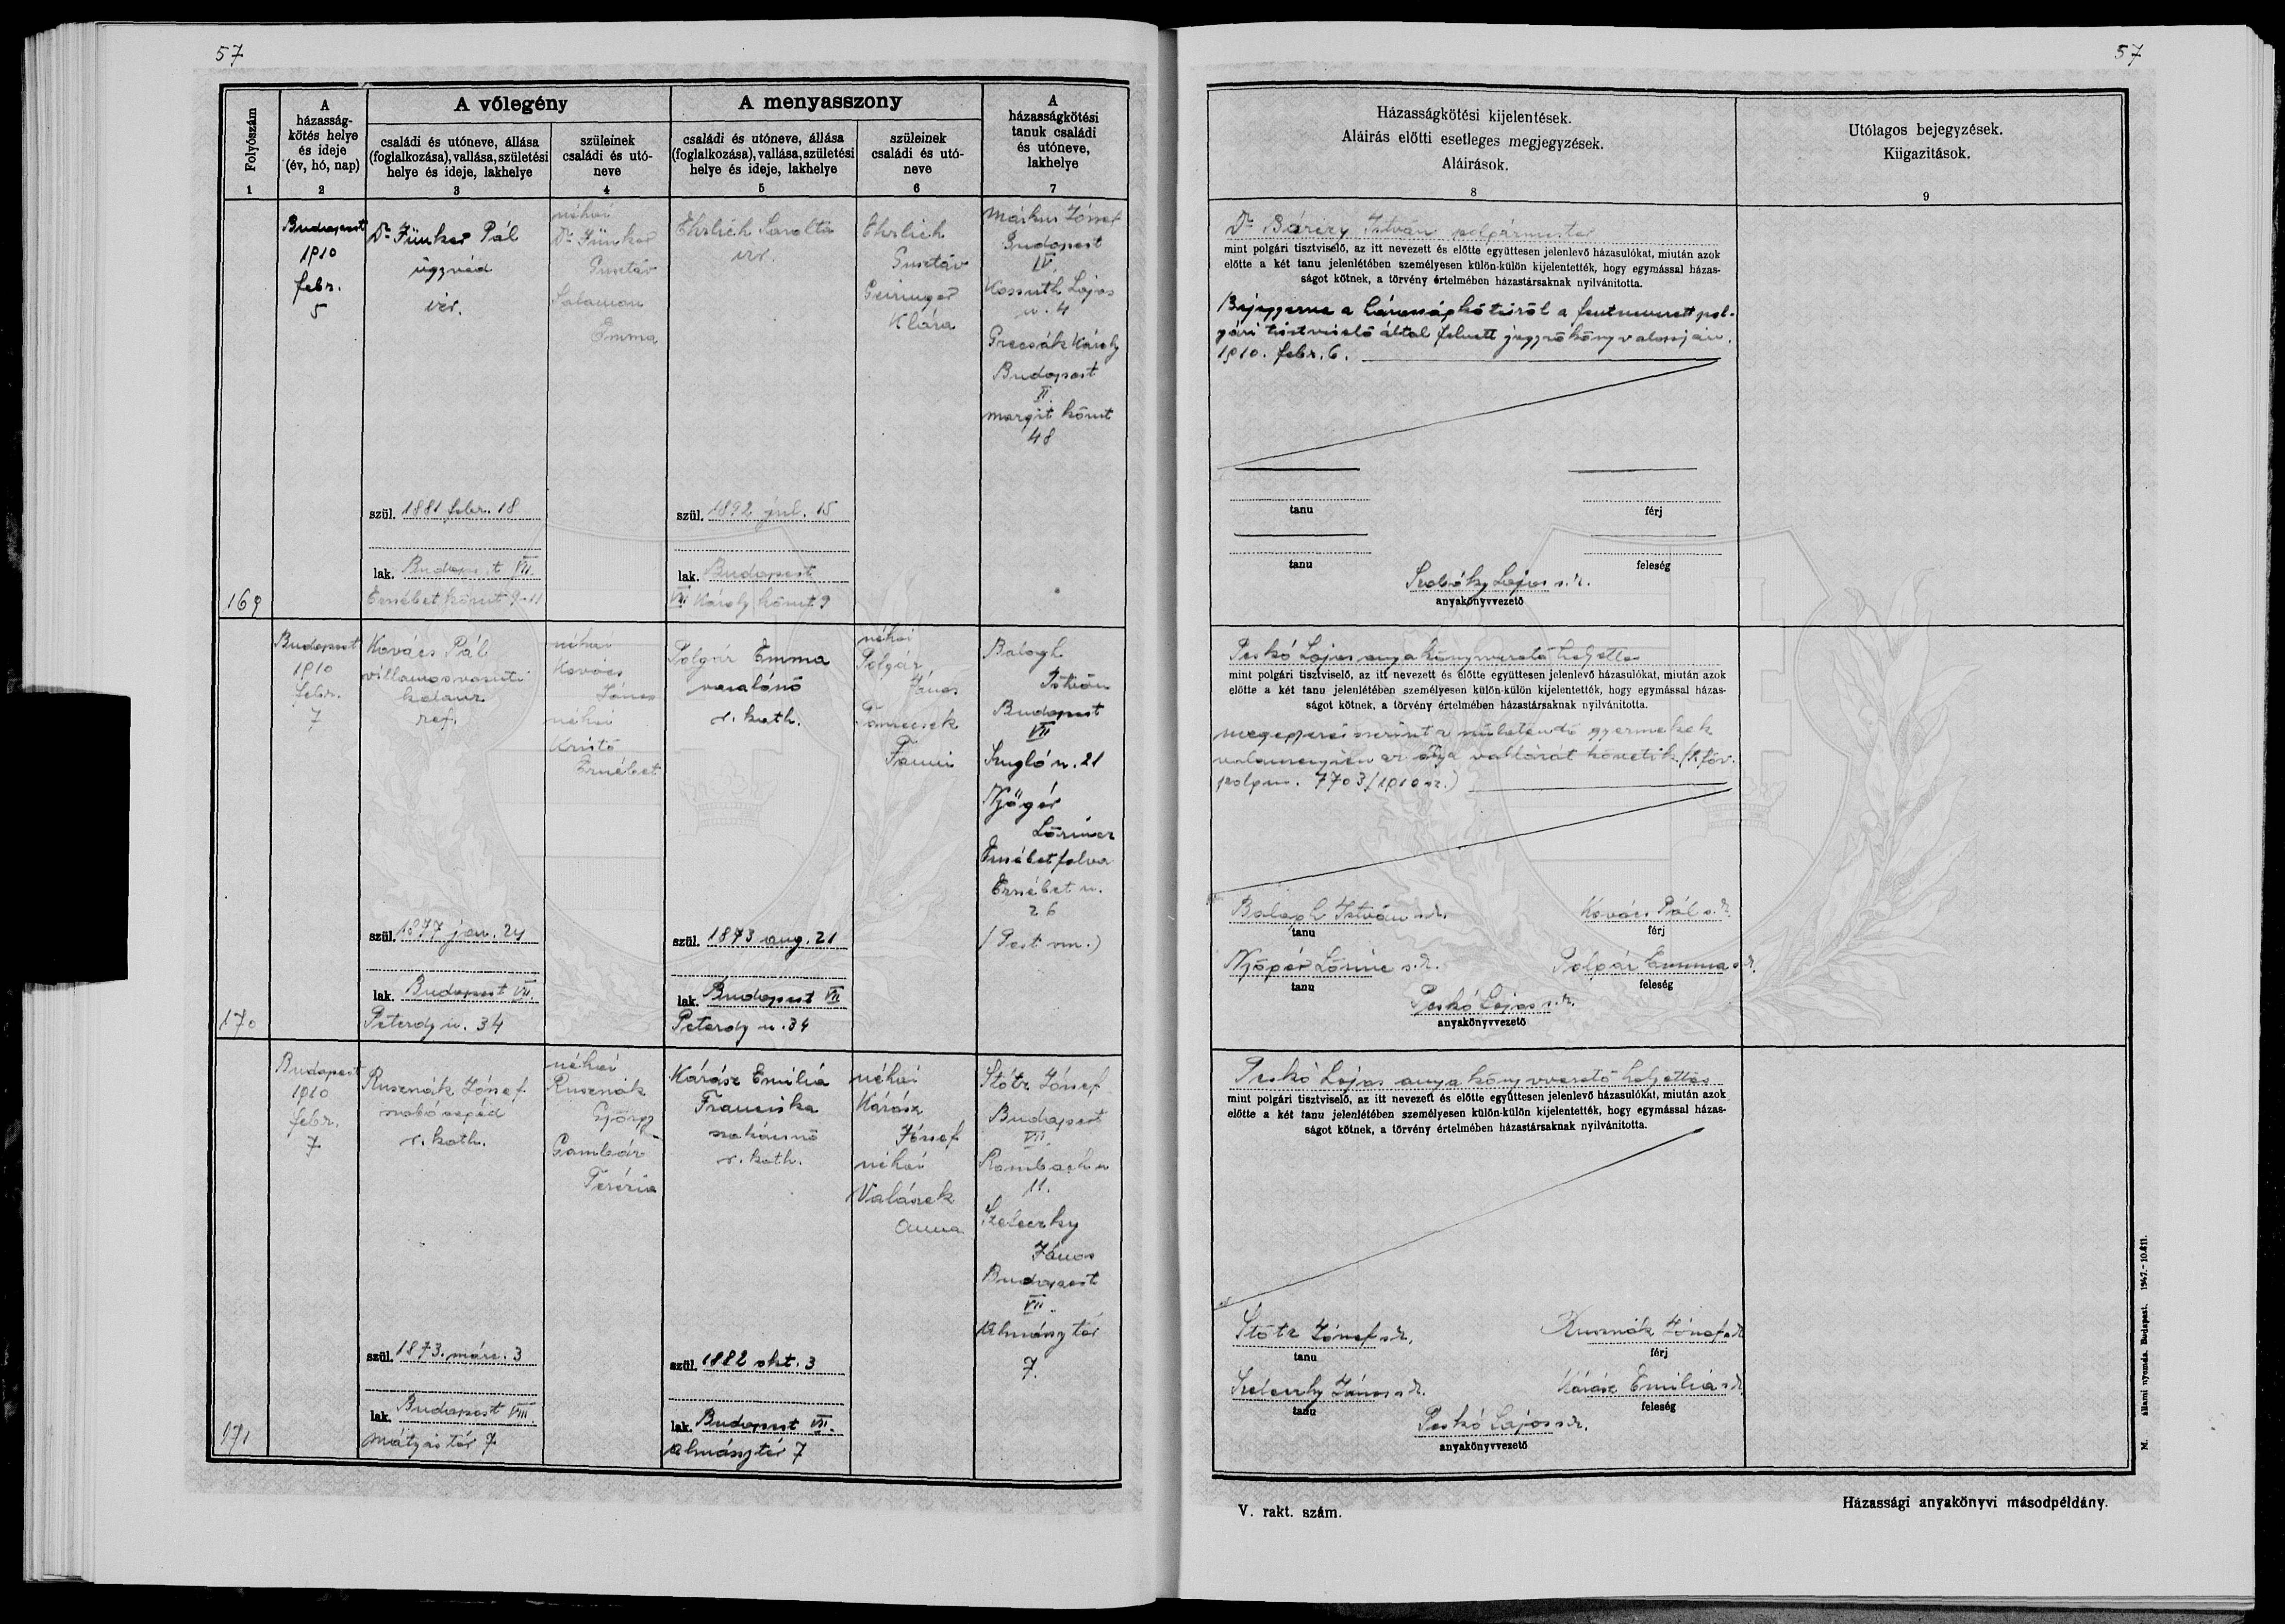 57
Folyószám
1
A
házasság-
kötés helye
és ideje
(év, hó, nap)
2
A vőlegény
családi és utóneve, állása
(foglalkozása), vallása, születési
helye és ideje, lakhelye
3
szüleinek
családi és utó-
neve
4
A menyasszony
családi és utóneve, állása
(foglalkozása), vallása, születési
helye és ideje, lakhelye
5
szüleinek
családi és utó-
neve
6
A
házasságkötési
tanuk családi
és utóneve,
lakhelye
7
169
Budapest
1910
febr.
5
Dr Fünker Pál
ügyvéd
izr.
szül. 1881 febr. 18
lak. Budapest VII.
Erzsébet körut 9-11
néhai
Dr Fünker
Gusztáv
Salamon
Emma
Ehrlich Sarolta
izr.
szül. 1892 jul. 15
lak. Budapest
VII Károly körut 9
Ehrlich
Gusztáv
Geiringer
Klára
Márkus József
Budapest
IV
Kossuth Lajos
u. 4
Grecsák Károly
Budapest
II.
margit körut
48
170
Budapest
1910
febr.
7
Kovács Pál
villamosvasuti
kalauz
ref.
szül. 1877 jan. 24
lak. Budapest VII.
Peterdy u. 34
néhai
Kovács
János
néhai
Kristó
Erzsébet
Polgár Emma
vasalónő
r. kath.
szül. 1873 aug. 21
lak. Budapest VII
Peterdy u. 34
néhai
Polgár
János
Fanni
Balogh
István
Budapest
VII
Szugló u. 21
Nyőgér
Lőrincz
Erzsébetfalva
Erzsébet u.
26
(Pest vm.)
171
Budapest
1910
febr.
7
Rusznák József
szabósegéd
r. kath.
szül. 1873. márc. 3
lak. Budapest VIII.
mátyás tér 7
néhai
Rusznák
György
Gambár
Terézia
Kárász Emilia
Franciska
szakácsnő
r. kath.
szül. 1882 okt. 3
lak. Budapest VII.
almásytér 7
néhai
Kárász
József
néhai
Valásek
Anna
Stótz József
Budapest
VII.
Rombach u
11.
Szeleczky
János
Budapest
VII.
Almásy tér
7.
57
Házasságkötési kijelentések.
Aláirás előtti esetleges megjegyzések.
Aláirások.
8
Utólagos bejegyzések.
Kiigazitások.
9
Dr Bárczy István polgármester
mint polgári tisztviselő, az itt nevezett és előtte együttesen jelenlevő házasulókat, miután azok
előtte a két tanu jelenlétében személyesen külön-külön kijelentették, hogy egymással házas-
ságot kötnek, a törvény értelmében házastársaknak nyilvánitotta.
Bejegyezve a házasságkötésről a fentnevezett pol-
gári tisztviselő által felvett jegyzőkönyv alapján.
1910. febr. 6.
tanu
férj
tanu
feleség
Szabóky Lajos s.k.
anyakönyvvezető
Peskó Lajos anyakönyvvezető helyettes
mint polgári tisztviselő, az itt nevezett és előtte együttesen jelenlevő házasulókat, miután azok
előtte a két tanu jelenlétében személyesen külön-külön kijelentették, hogy egymással házas-
ságot kötnek, a törvény értelmében házastársaknak nyilvánitotta.
megegyezés szerint a születendő gyermekek
valamennyien az atya vallását követik (sz. főv.
polgm. 7703/1910 sz.)
Balogh István s.k.
tanu
Kovács Pál s.k.
férj
Nyőgér Lőrinc s.k.
tanu
Polgár Emma s.k.
feleség
Peskó Lajos s.k.
anyakönyvvezető
Peskó Lajos anyakönyvvezető helyettes
mint polgári tisztviselő, az itt nevezett és előtte együttesen jelenlevő házasulókat, miután azok
előtte a két tanu jelenlétében személyesen külön-külön kijelentették, hogy egymással házas-
ságot kötnek, a törvény értelmében házastársaknak nyilvánitotta.
Stótz József s.k.
tanu
Rusznák József s.k.
férj
Szeleczky János s.k.
tanu
Kárász Emilia s.k.
feleség
Peskó Lajos s.k.
anyakönyvvezető
V. rakt. szám.
Házassági anyakönyvi másodpéldány.
M. állami nyomda. Budapest. 1947.-10.811.